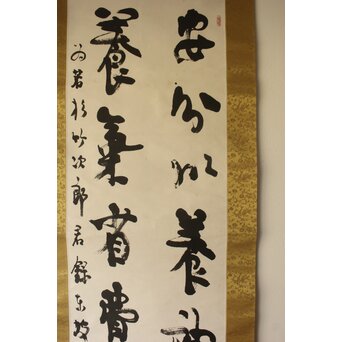 安分以養神
養氣省費
為若杉竹次郎君録東坡